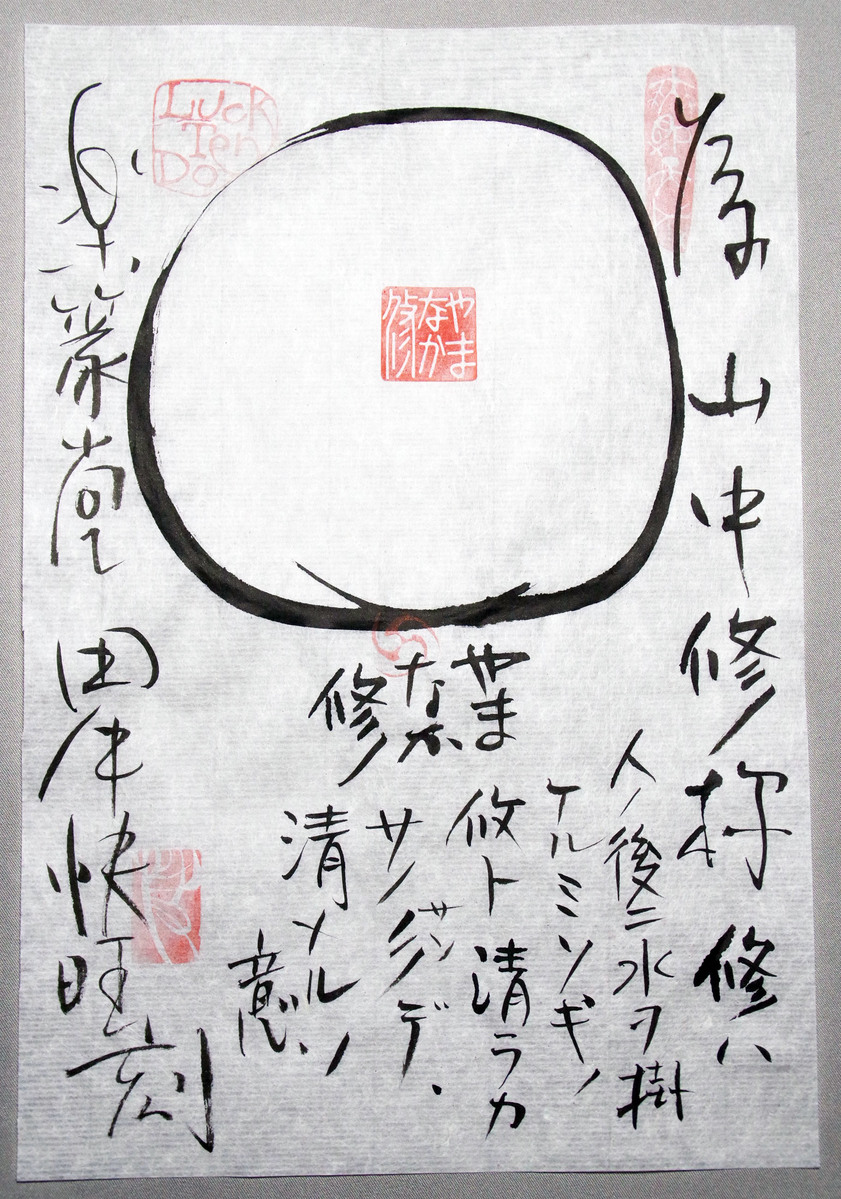 山中修様 修ハ
人ノ後ニ水ヲ掛
ケルミソギノ
攸ト清ラカ
サノ彡サンデ、
清メルノ
意
やま
なか
修
やま
なか
修
Luck
Ten
Do
楽篆堂 田中快旺刻